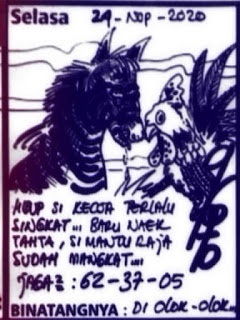 Selasa 24 - NOP - 2020
HIDUP SI KECOA TERLALU
SINGKAT... BARU NAEK
TAHTA, SI MANTU RAJA
SUDAH MANGKAT...
JAGA2 : 62-37-05
BINATANGNYA : DI OLOK-OLOK..